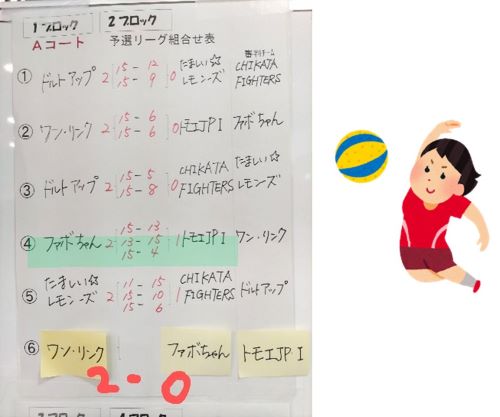 1ブロック 2ブロック
Aコート 予選リーグ組合せ表
審判チーム
① ドルトアップ 2 15-12 15-9 0 たまい☆レモンズ CHIKATA FIGHTERS
② ワン・リンク 2 15-6 15-6 0 トモエJP I ファボちゃん
③ ドルトアップ 2 15-5 15-8 0 CHIKATA FIGHTERS たまい☆レモンズ
④ ファボちゃん 2 15-13 13-15 15-4 1 トモエJP I ワン・リンク
⑤ たまい☆レモンズ 2 11-15 15-10 15-6 1 CHIKATA FIGHTERS ドルトアップ
⑥ ワン・リンク ファボちゃん トモエJP I
2-0